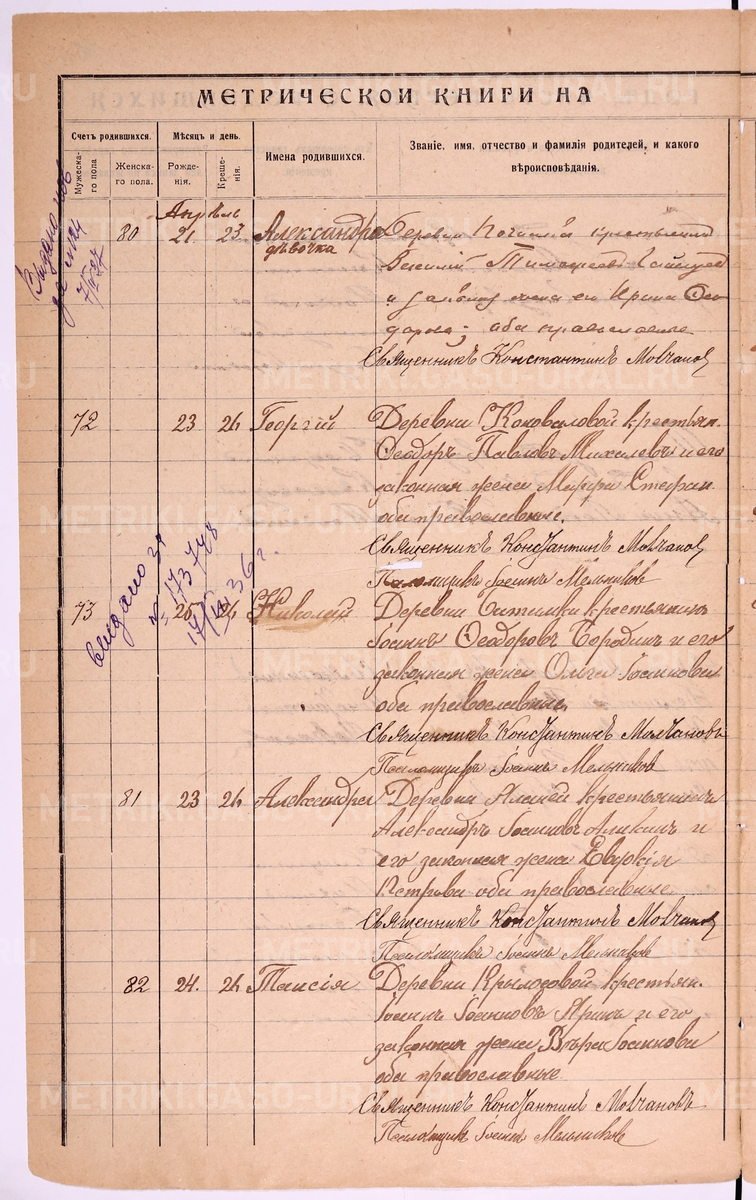 МЕТРИЧЕСКОЙ КНИГИ НА
Счетъ родившихся.
Мужеска-го пола.
Женска-го пола.
Мѣсяцъ и день.
Рожде-нія.
Креще-нія.
Имена родившихся.
Званіе, имя, отчество и фамилія родителей, и какого
вѣроисповѣданія.
Апрѣль
80 21 23 Александра
дѣвочка
Деревни крестьянинъ
Василій Тимофеевъ
и законная жена его Ирина Ѳео
дорова; оба православные
Священникъ Константинъ Молчановъ
72 23 26 Георгій
Деревни Коноваловой крестьян.
Ѳеодоръ Павловъ Михалевъ и его
законная жена Марѳа Стефан.
оба православные.
Священникъ Константинъ Молчановъ
Псаломщикъ Іоаннъ Мельниковъ
выдано
173748
36 г.
73 25 26 Николай
Деревни крестьянинъ
Іоаннъ Ѳеодоровъ Бородинъ и его
законная жена Ольга Іоаннова
оба православные.
Священникъ Константинъ Молчановъ
Псаломщикъ Іоаннъ Мельниковъ
81 23 26 Александра
Деревни крестьянинъ
Александръ Іоанновъ Аликинъ и
его законная жена Евдокія
Петрова оба православные
Священникъ Константинъ Молчановъ
Псаломщикъ Іоаннъ Мельниковъ
82 24. 26 Таисія
Деревни Крылосовой крестьян.
Іоаннъ Іоанновъ Яринъ и его
законная жена Вѣра Іоаннова
оба православные
Священникъ Константинъ Молчановъ
Псаломщикъ Іоаннъ Мельниковъ
METRIKI.GASO-URAL.RU